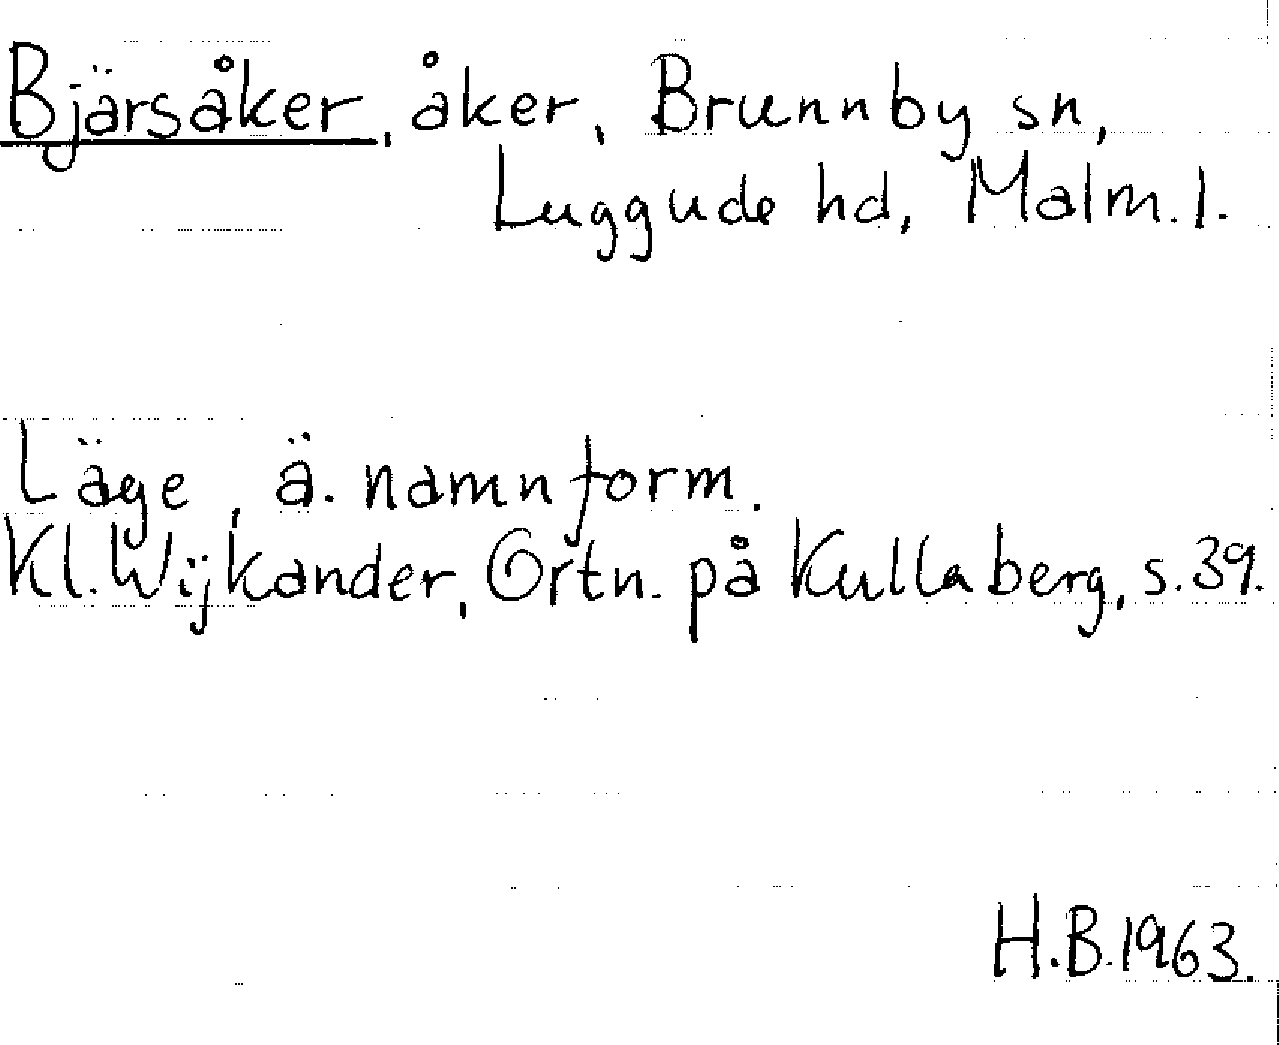 Bjärsåker, åker, Brunnby sn,
Luggude hd, Malm. l.
Läge, ä. namnform.
Kl. Wijkander, Ortn. på Kullaberg, s. 39.
H.B. 1963.